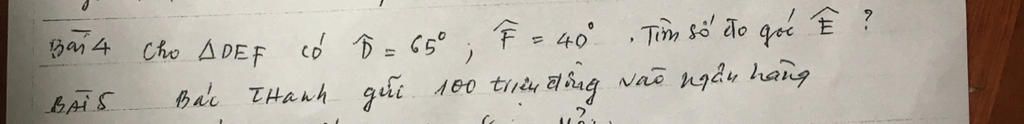 Bài 4 Cho △DEF có D̂ = 65°, F̂ = 40°. Tìm số đo góc Ê ?
BÀI 5 Bác THanh gửi 100 triệu đồng vào ngân hàng